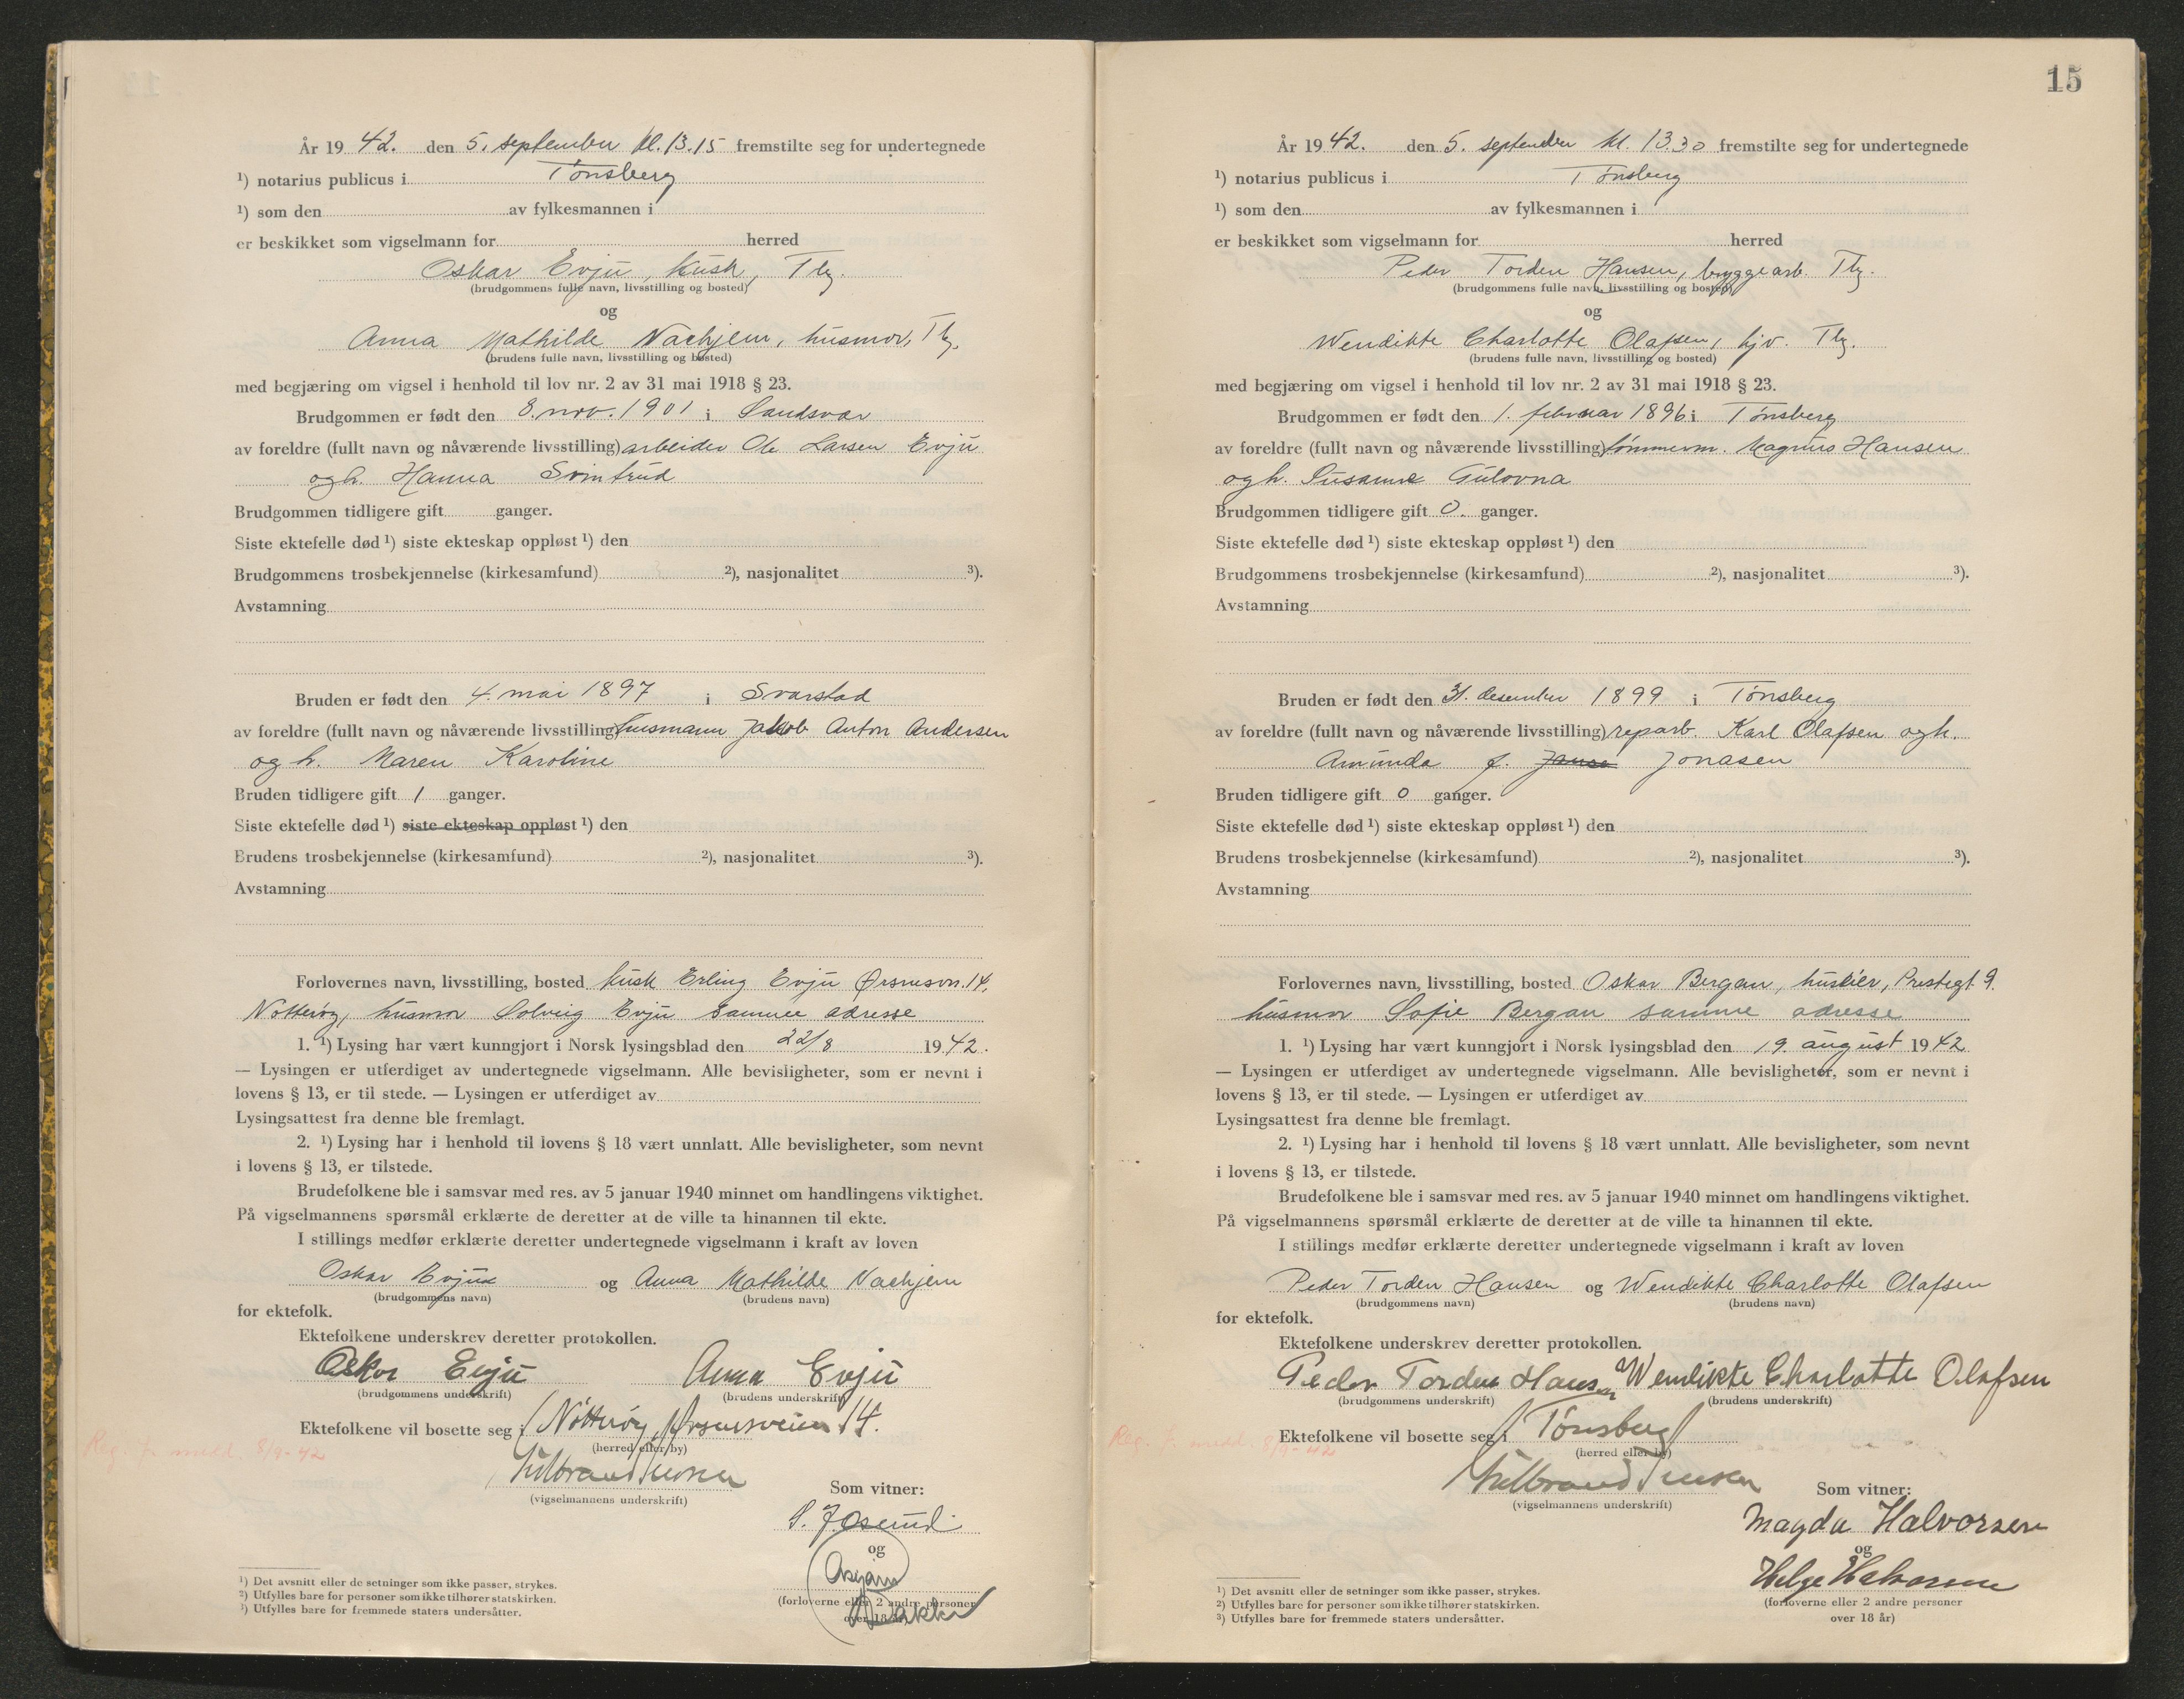 År 1942. den 5. september kl. 13.15 fremstilte seg for undertegnede
¹) notarius publicus i Tønsberg
¹) som den av fylkesmannen i
er beskikket som vigselmann for herred
Oskar Evju, kusk, Tbg.
(brudgommens fulle navn, livsstilling og bosted)
og
Anna Mathilde Nachjem, husmor, Tbg.
(brudens fulle navn, livsstilling og bosted)
med begjæring om vigsel i henhold til lov nr. 2 av 31 mai 1918 § 23.
Brudgommen er født den 8. nov. 1901 i Sandsvær
av foreldre (fullt navn og nåværende livsstilling) arbeider Ole Larsen Evju
og h. Hanna Svintrud
Brudgommen tidligere gift ganger.
Siste ektefelle død ¹) siste ekteskap oppløst ¹) den
Brudgommens trosbekjennelse (kirkesamfund) ²), nasjonalitet ³).
Avstamning
Bruden er født den 4. mai 1897 i Svarstad
av foreldre (fullt navn og nåværende livsstilling) husmann Jakob Anton Andersen
og h. Maren Karoline
Bruden tidligere gift 1 ganger.
Siste ektefelle død ¹) siste ekteskap oppløst ¹) den
Brudens trosbekjennelse (kirkesamfund) ²), nasjonalitet ³).
Avstamning
Forlovernes navn, livsstilling, bosted kusk Erling Evju Ørsnesvn. 14,
Nøtterøy, husmor Solveig Evju samme adresse
1. ¹) Lysing har vært kunngjort i Norsk lysingsblad den 22/8 1942.
— Lysingen er utferdiget av undertegnede vigselmann. Alle bevisligheter, som er nevnt i
lovens § 13, er til stede. — Lysingen er utferdiget av
Lysingsattest fra denne ble fremlagt.
2. ¹) Lysing har i henhold til lovens § 18 vært unnlatt. Alle bevisligheter, som nevnt
i lovens § 13, er tilstede.
Brudefolkene ble i samsvar med res. av 5 januar 1940 minnet om handlingens viktighet.
På vigselmannens spørsmål erklærte de deretter at de ville ta hinannen til ekte.
I stillings medfør erklærte deretter undertegnede vigselmann i kraft av loven
Oskar Evju og Anna Mathilde Nachjem
(brudgommens navn) (brudens navn)
for ektefolk.
Ektefolkene underskrev deretter protokollen.
Oskar Evju Anna Evju
(brudgommens underskrift) (brudens underskrift)
Ektefolkene vil bosette seg i Nøtterøy, Ørsnesveien 14.
(herred eller by)
Reg. f. medd. 8/9-42
(vigselmannens underskrift)
Som vitner:
S. Josund
og
Asbjørn
Bakke
(forloverne eller 2 andre personer
over 18 år)
¹) Det avsnitt eller de setninger som ikke passer, strykes.
²) Utfylles bare for personer som ikke tilhører statskirken.
³) Utfylles bare for fremmede staters undersåtter.
15
År 1942. den 5. september kl. 13.30 fremstilte seg for undertegnede
¹) notarius publicus i Tønsberg
¹) som den av fylkesmannen i
er beskikket som vigselmann for herred
Peder Torden Hansen, bryggearb. Tbg.
(brudgommens fulle navn, livsstilling og bosted)
og
Wendikte Charlotte Olafsen, hjv. Tbg.
(brudens fulle navn, livsstilling og bosted)
med begjæring om vigsel i henhold til lov nr. 2 av 31 mai 1918 § 23.
Brudgommen er født den 1. februar 1896 i Tønsberg
av foreldre (fullt navn og nåværende livsstilling) tømmerm. Magnus Hansen
og h. Susanne Gulovna
Brudgommen tidligere gift 0. ganger.
Siste ektefelle død ¹) siste ekteskap oppløst ¹) den
Brudgommens trosbekjennelse (kirkesamfund) ²), nasjonalitet ³).
Avstamning
Bruden er født den 31. desember 1899 i Tønsberg
av foreldre (fullt navn og nåværende livsstilling) reparb. Karl Olafsen og h.
Amunda f. Janse Jonasen
Bruden tidligere gift 0 ganger.
Siste ektefelle død ¹) siste ekteskap oppløst ¹) den
Brudens trosbekjennelse (kirkesamfund) ²), nasjonalitet ³).
Avstamning
Forlovernes navn, livsstilling, bosted Oskar Bergan, huseier, Prestegt. 9.
husmor Sofie Bergan samme adresse
1. ¹) Lysing har vært kunngjort i Norsk lysingsblad den 19. august 1942
— Lysingen er utferdiget av undertegnede vigselmann. Alle bevisligheter, som er nevnt i
lovens § 13, er til stede. — Lysingen er utferdiget av
Lysingsattest fra denne ble fremlagt.
2. ¹) Lysing har i henhold til lovens § 18 vært unnlatt. Alle bevisligheter, som nevnt
i lovens § 13, er tilstede.
Brudefolkene ble i samsvar med res. av 5 januar 1940 minnet om handlingens viktighet.
På vigselmannens spørsmål erklærte de deretter at de ville ta hinannen til ekte.
I stillings medfør erklærte deretter undertegnede vigselmann i kraft av loven
Peder Torden Hansen og Wendikte Charlotte Olafsen
(brudgommens navn) (brudens navn)
for ektefolk.
Ektefolkene underskrev deretter protokollen.
Peder Torden Hansen Wendikte Charlotte Olafsen
(brudgommens underskrift) (brudens underskrift)
Ektefolkene vil bosette seg i Tønsberg
(herred eller by)
Reg. f. medd. 8/9-42
(vigselmannens underskrift)
Som vitner:
Magda Halvorsen
og
Helge Halvorsen
(forloverne eller 2 andre personer
over 18 år)
¹) Det avsnitt eller de setninger som ikke passer, strykes.
²) Utfylles bare for personer som ikke tilhører statskirken.
³) Utfylles bare for fremmede staters undersåtter.